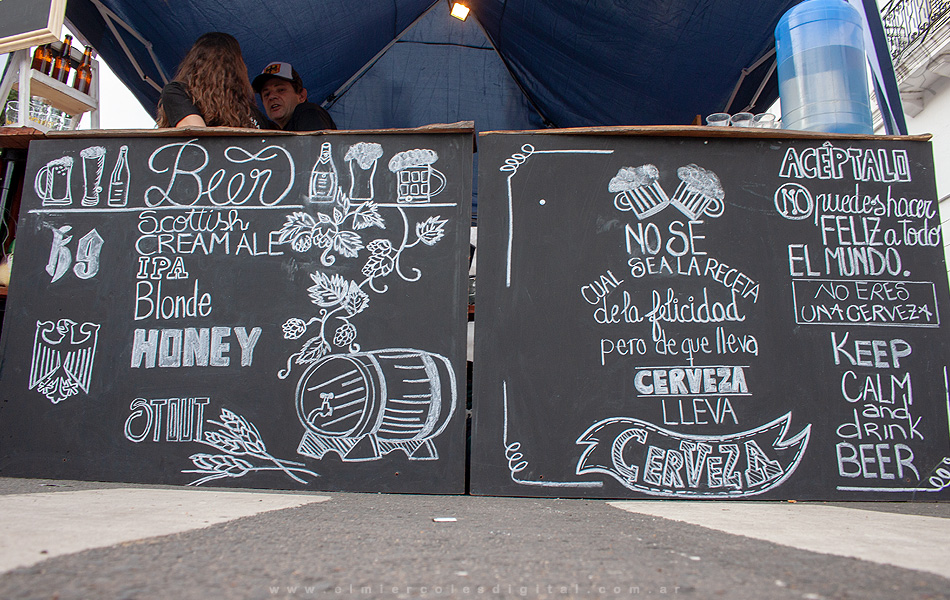 Beer
Scottish
CREAM ALE
IPA
Blonde
HONEY
STOUT
NO SE
CUAL SEA LA RECETA
de la felicidad
pero de que lleva
CERVEZA
LLEVA
CERVEZA
ACÉPTALO
NO puedes hacer
FELIZ a todo
EL MUNDO.
NO ERES
UNA CERVEZA
KEEP
CALM
and
drink
BEER
www.elmiercolesdigital.com.ar